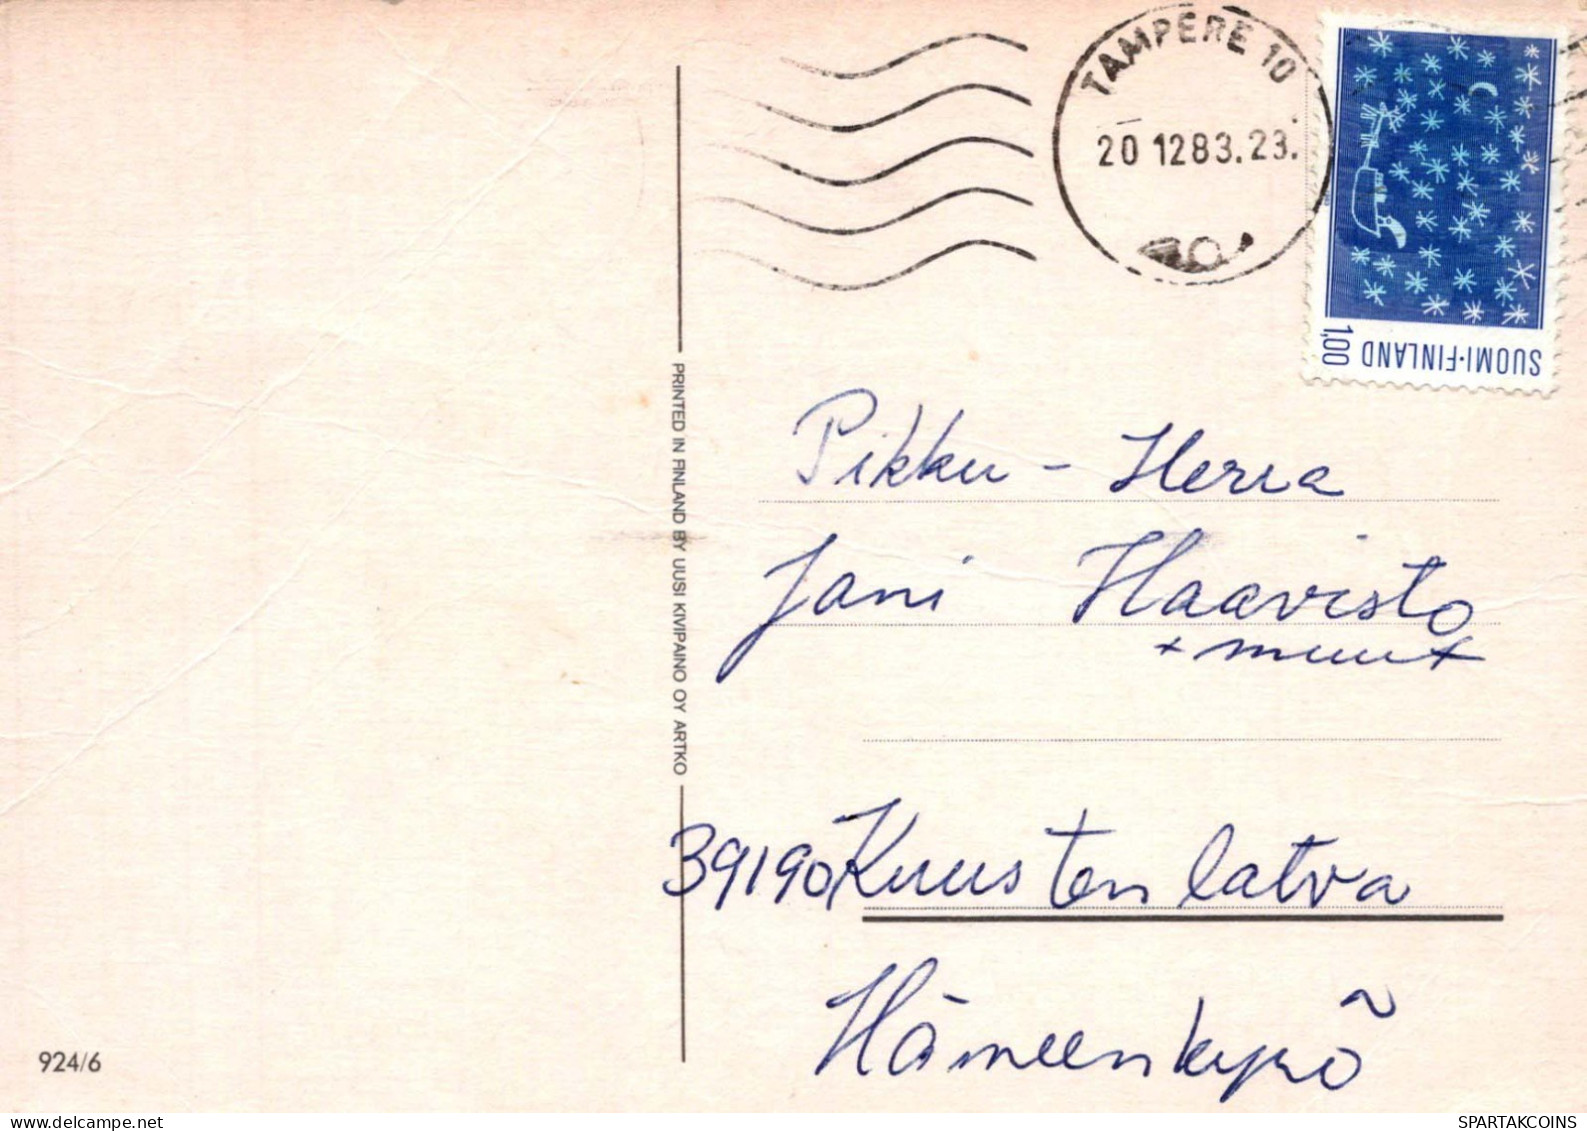 TAMPERE 10
20 12 83.23.
SUOMI-FINLAND
1,00
PRINTED IN FINLAND BY UUSI KIVIPAINO OY ARTKO
Pikku - Herra
Jani Haavisto
+ muut
39190 Kuusten latva
Hämeenkyrö
924/6
SPARTAKCOINS